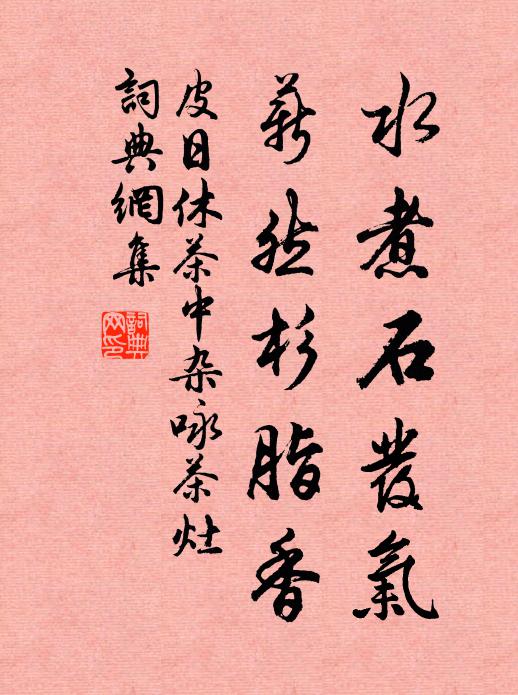 水煮石發氣
薪然杉脂香
皮日休茶中杂咏茶灶
詞典網集
詞典網印